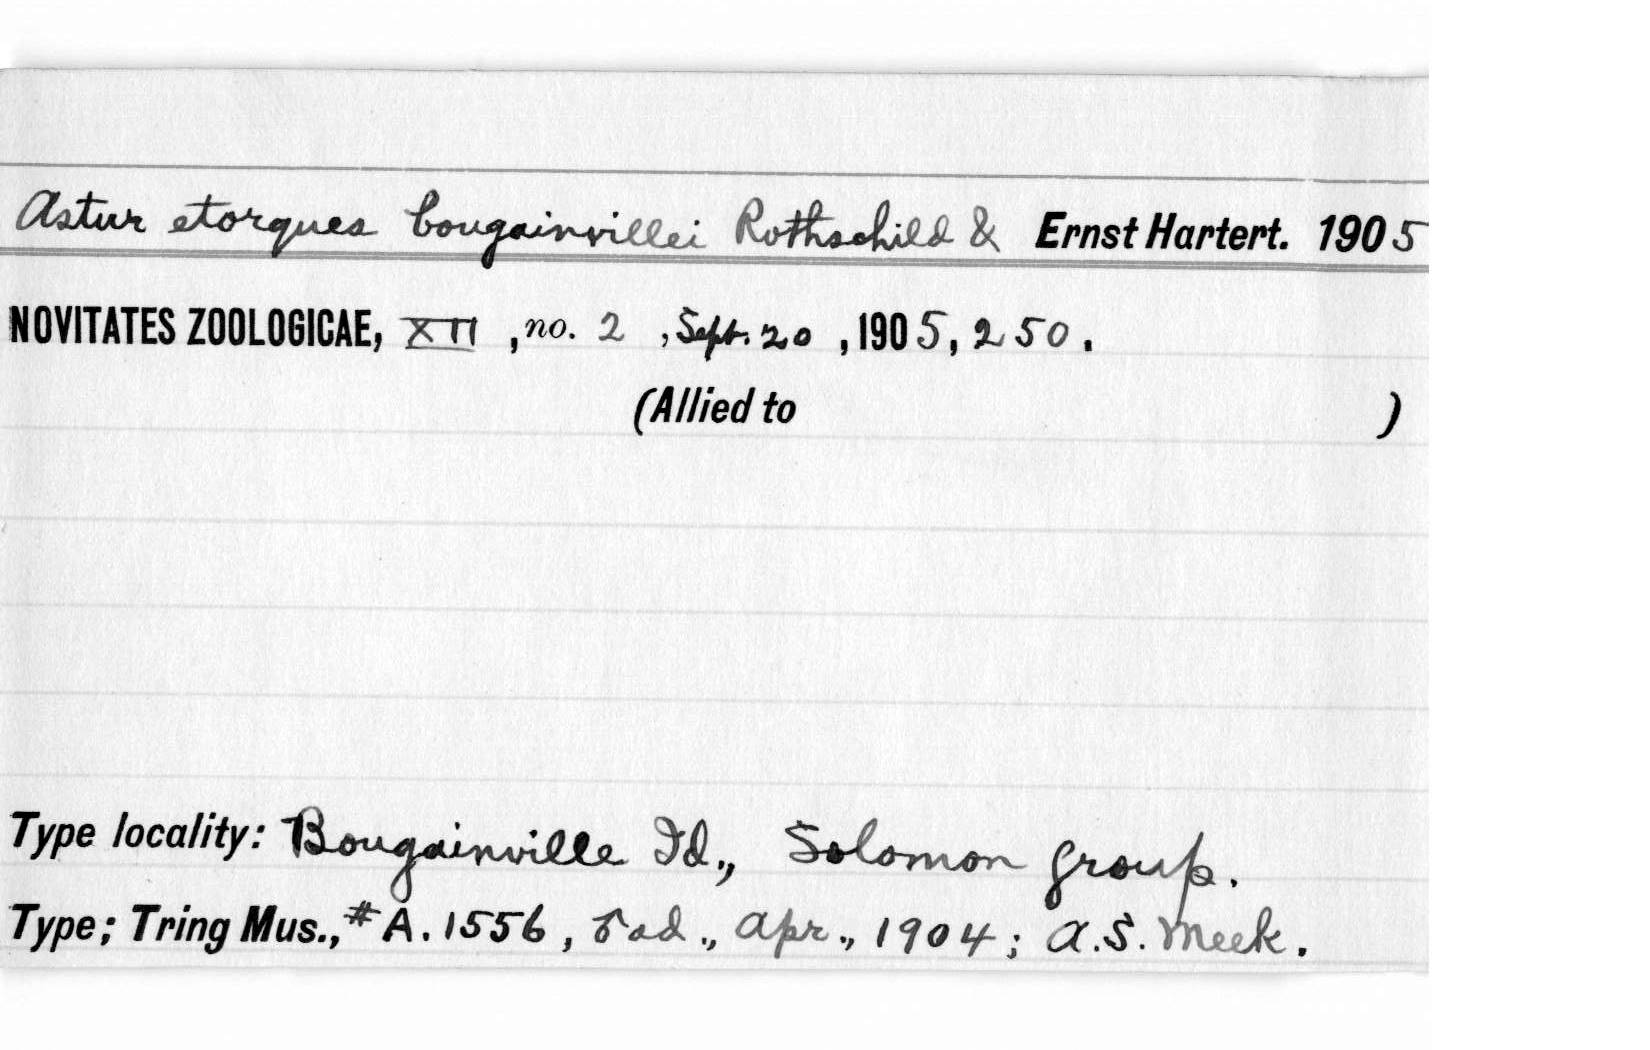 Astur etorques bougainvillei Rothschild & Ernst Hartert. 1905
NOVITATES ZOOLOGICAE, XII, no. 2, Sept. 20, 1905, 250.
(Allied to )
Type locality: Bougainville Id., Solomon group.
Type; Tring Mus., #A.1556, ♂ ad., Apr., 1904; A.S. Meek.